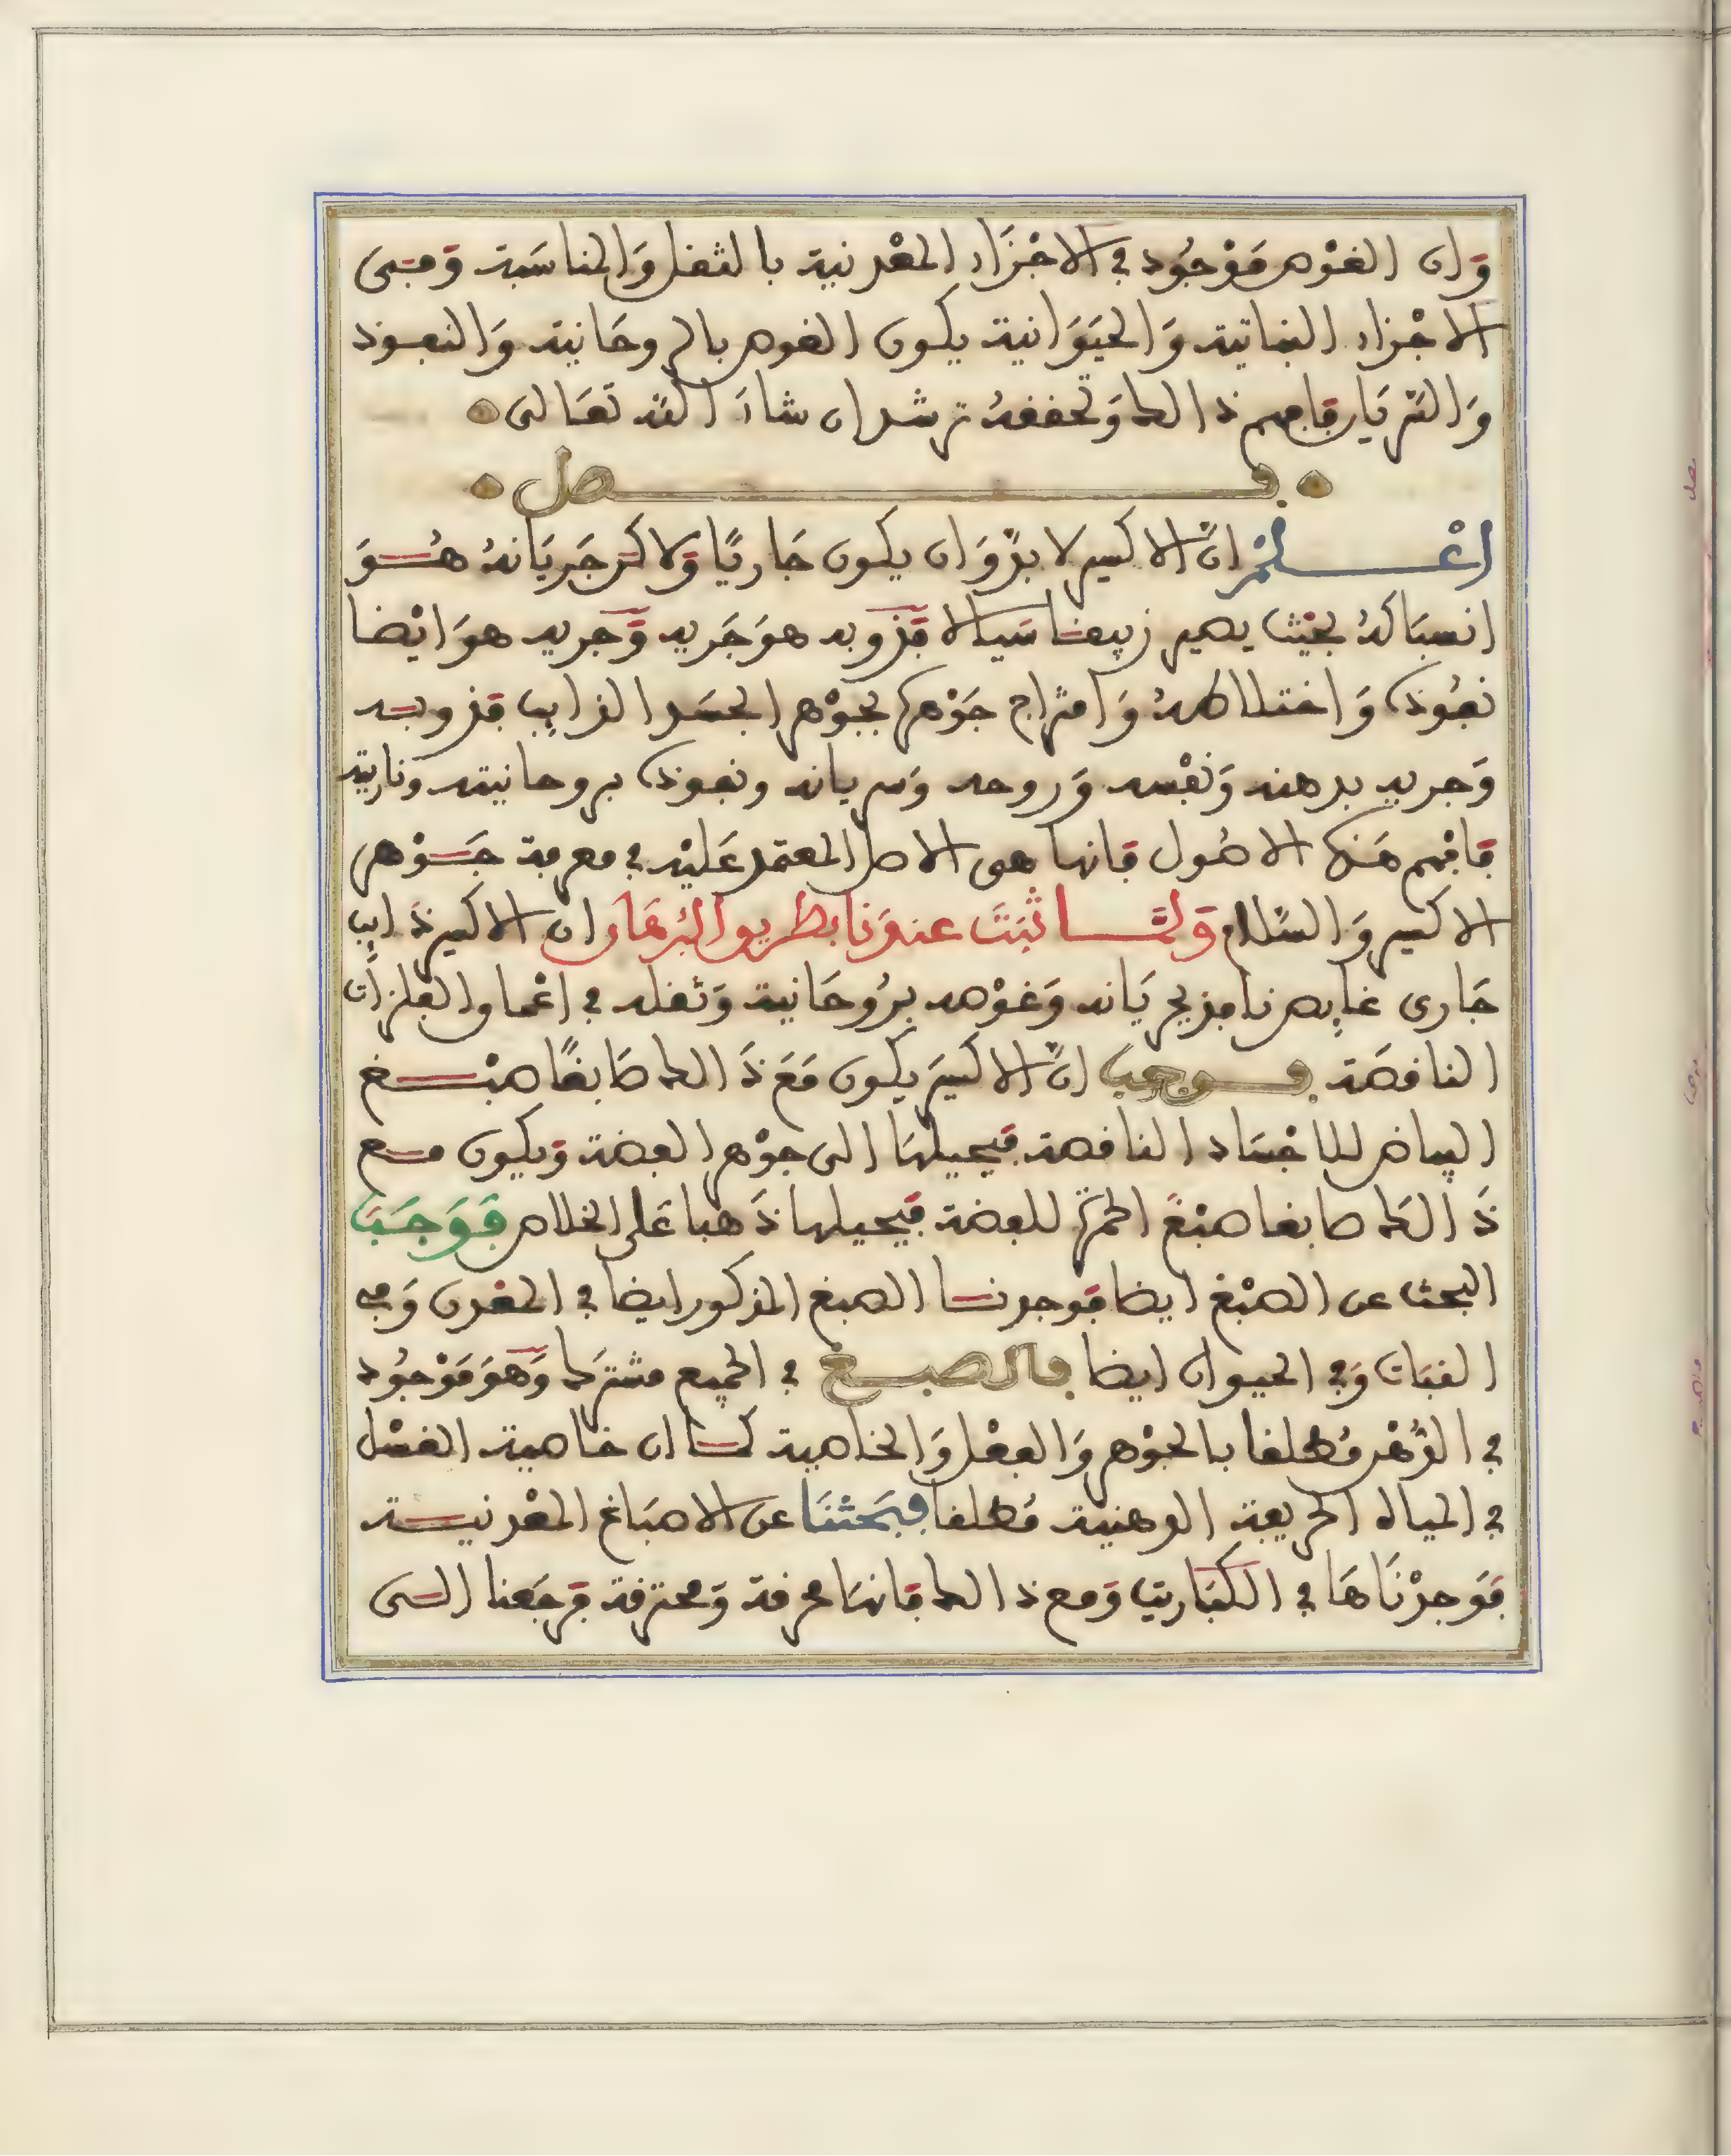 وان الغوص موجود في الاجزاء المعدنية بالثقل والمناسبة ومتى
الاجزاء النباتية والحيوانية يكون الغوص بالروحانية والنفوذ
والسريان فافهم ذالك وتحققه ترشد ان شاء الله تعالى
فصل
اعلم ان الاكسير لا بد وان يكون جاريا ولاكن جريانه هو
انسباكه بحيث يصير زيبقا سيالا فذوبه هو جريه وجريه هو ايضا
نفوذه واختلاطه وامتزاج جوهره بجوهر الجسد الذايب فذوبه
وجريه بدهنه ونفسه وروحه وسريانه ونفوذه بروحانيته وناريته
فافهم هذه الاصول فانها هى الاصل المعتمد عليه في معرفة جوهر
الاكسير والسلام ولما ثبت عندنا بطريق البرهان ان الاكسير ذايب
جارى غايص نافذ بجريانه وغوصه بروحانية وثقله في اعماق الفلزات
الناقصة فوجب ان الاكسير يكون مع ذالك صابغا صبغ
البياض للاجساد الناقصة فيحيلها الى جوهر الفضة ويكون مع
ذالك صابغا صبغ الحمرة للفضة فيحيلها ذهبا على الخلاص فوجب
البحث عن الصبغ ايضا فوجدنا الصبغ المذكور ايضا في المعدن وفي
النبات وفي الحيوان ايضا فالصبغ في الجميع مشترك وهو موجود
في الدهن مطلقا بالجوهر والفعل والخاصية كما ان خاصية الغسل
في المياه الحريفة الدهنية مطلقا فبحثنا عن الاصباغ المعدنية
فوجدناها في الكباريت ومع ذالك فانها محرقة ومحترقة فرجعنا الى